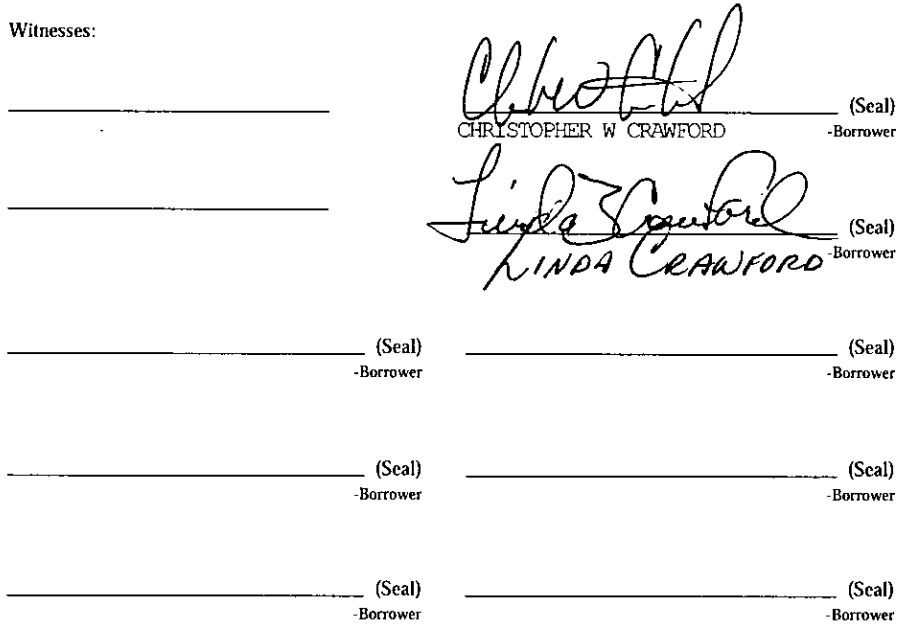 Witnesses:
(Seal)
CHRISTOPHER W CRAWFORD -Borrower
Linda Crawford (Seal)
-Borrower
LINDA CRAWFORD
(Seal) (Seal)
-Borrower -Borrower
(Seal) (Seal)
-Borrower -Borrower
(Seal) (Seal)
-Borrower -Borrower